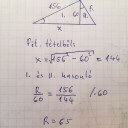 156
1.
60
R
x
Pit. tételből
x = √156² - 60² = 144
1. és 11. hasonló
R/60 = 156/144 /·60
R = 65